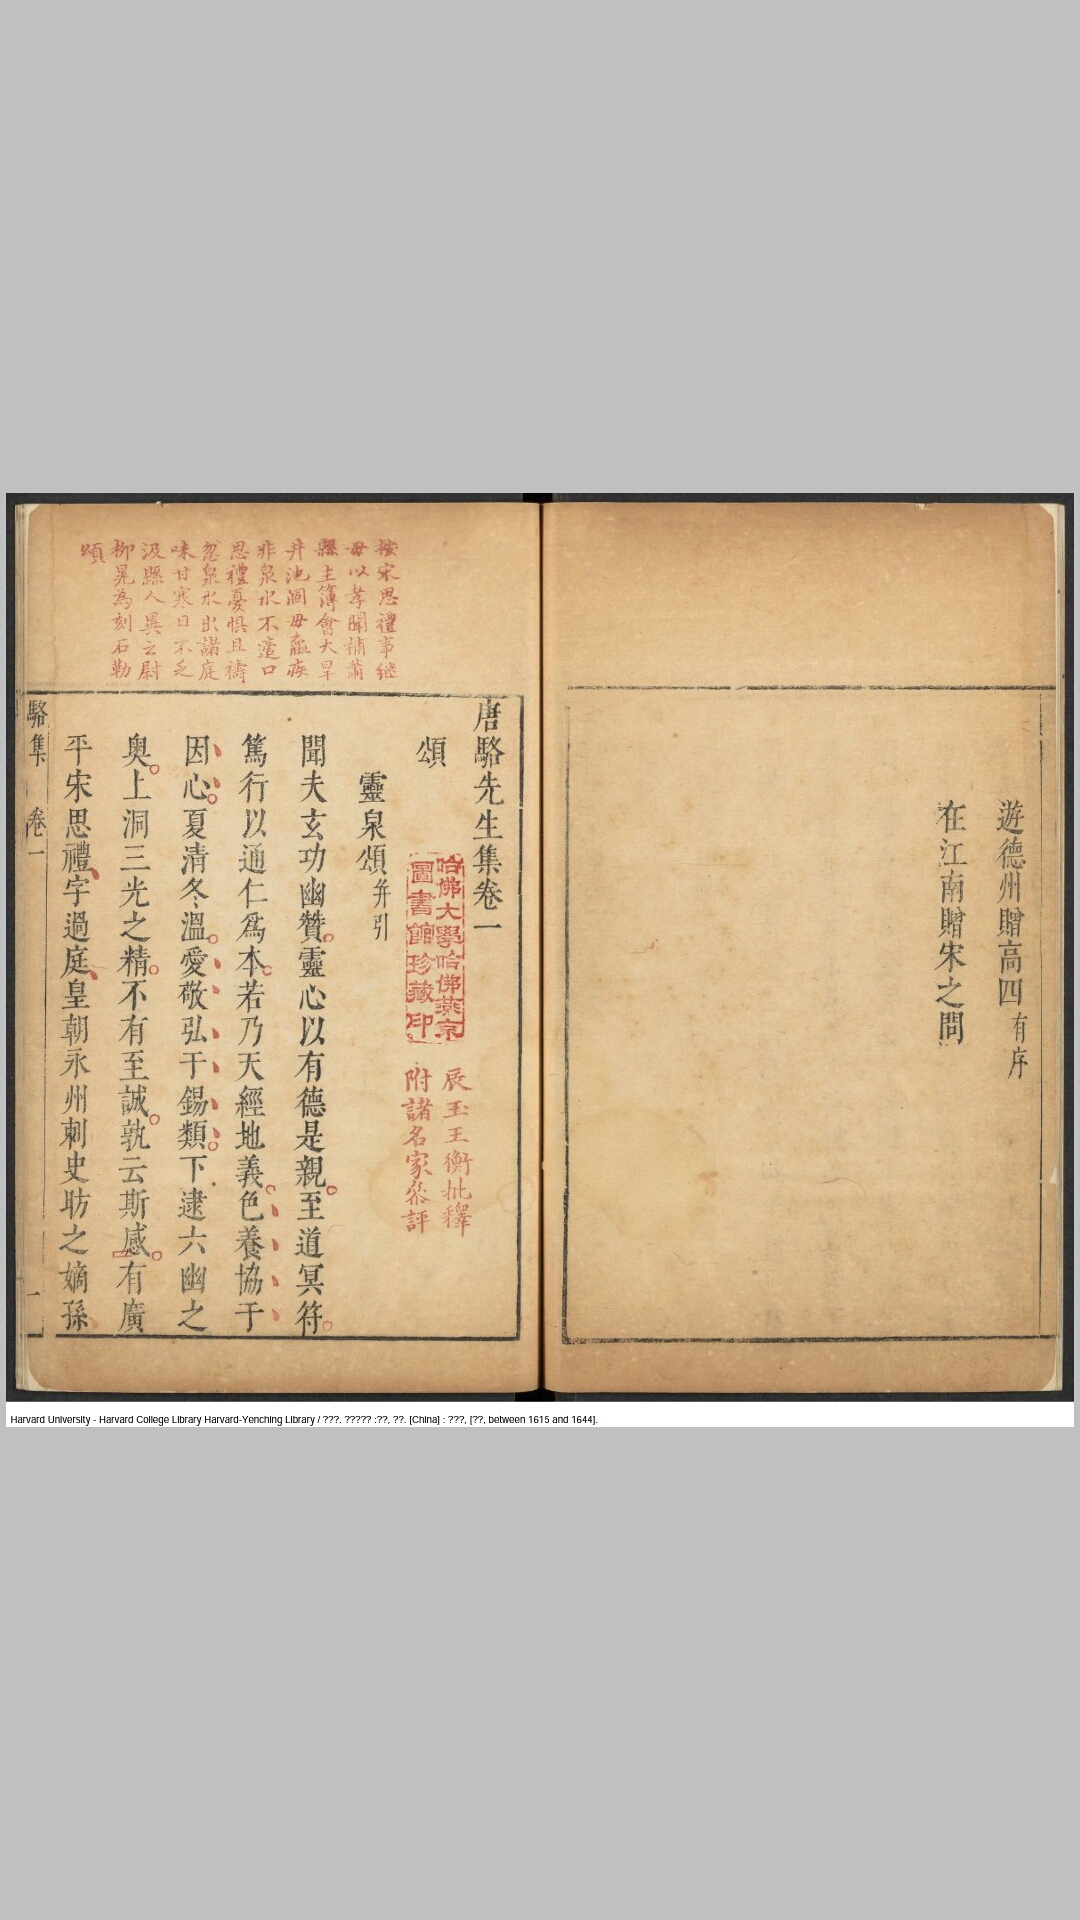 遊德州贈高四有序
在江南贈宋之問
唐駱先生集卷一
哈佛大學哈佛燕京
圖書館珍藏印
辰玉王衡批釋
附諸名家叅評
頌
靈泉頌并引
聞夫玄功幽贊靈心以有德是親至道冥符
篤行以通仁爲本若乃天經地義色養協于
因心夏清冬溫愛敬弘于錫類下逮六幽之
奥上洞三光之精不有至誠孰云斯感有廣
平宋思禮字過庭皇朝永州刺史昉之嫡孫
按宋思禮事継
母以孝聞補蕭
縣主簿會大旱
井池涸母羸疾
非泉水不適口
思禮憂惧且禱
忽泉水出諸庭
味甘寒日不乏
汲縣人異之尉
柳晃為刻石勒
頌
駱集 卷一 一
Harvard University - Harvard College Library Harvard-Yenching Library / ???. ????? :??, ??. [China] : ???, [??, between 1615 and 1644].